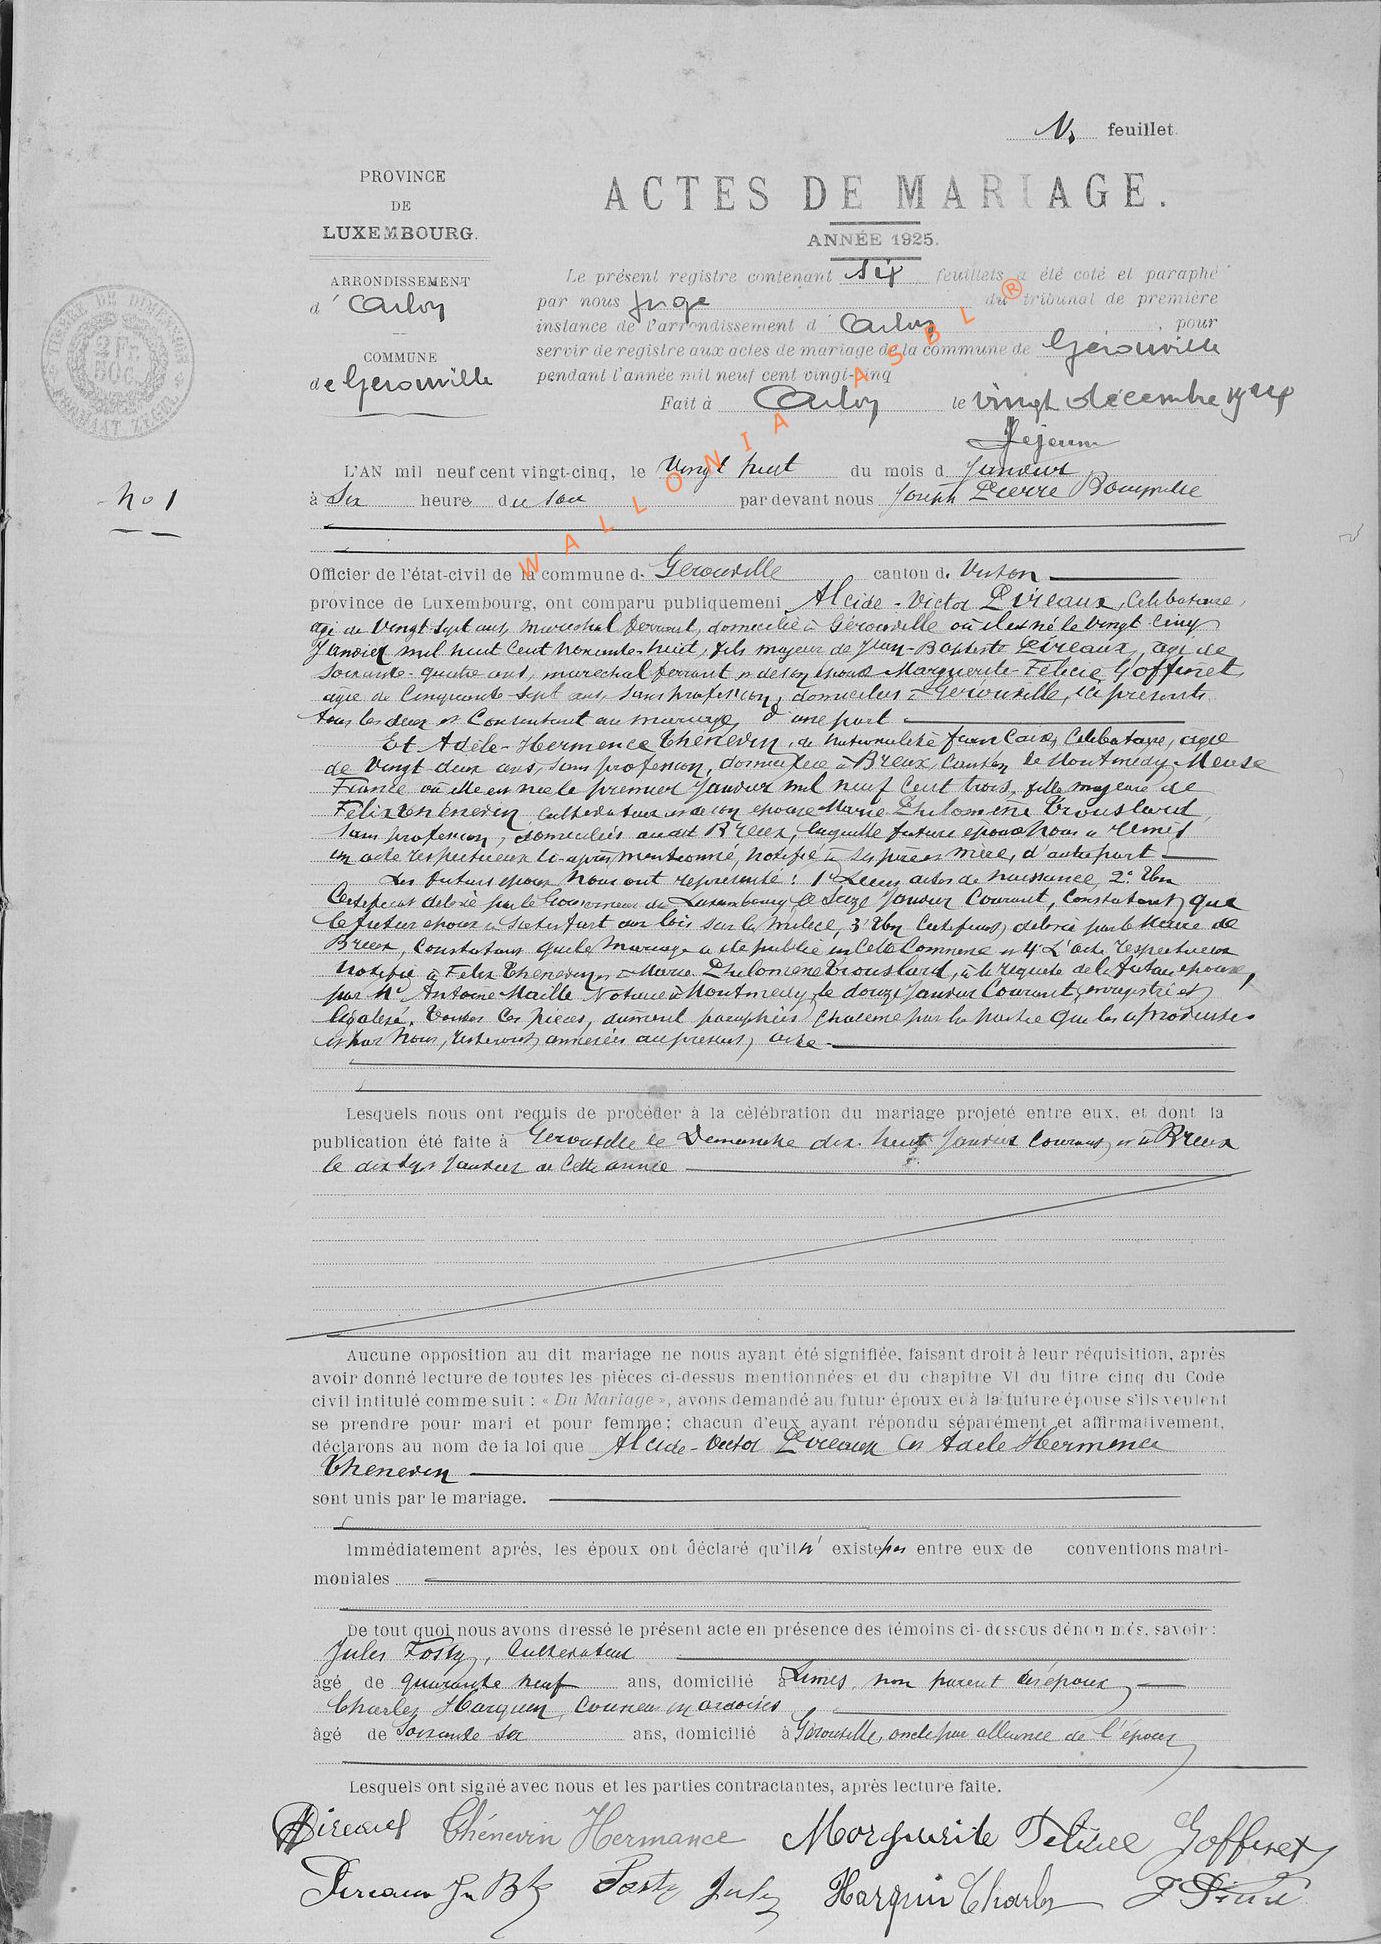 1. feuillet.
PROVINCE
DE
LUXEMBOURG.
ARRONDISSEMENT
d'Arlon
COMMUNE
de Gérouville
TIMBRE DE DIMENSION
2 Fr.
50 C.
ACTES DE MARIAGE.
ANNÉE 1925.
Le présent registre contenant six feuillets a été coté et paraphé
par nous Juge du tribunal de première
instance de l'arrondissement d'Arlon, pour
servir de registre aux actes de mariage de la commune de Gérouville
pendant l'année mil neuf cent vingt-cinq
Fait à Arlon le vingt décembre 1924
Lejeune
WALLONIA ASBL ®
No 1
L'AN mil neuf cent vingt-cinq, le vingt huit du mois d Janvier
à six heure du soir par devant nous Joseph Pierre
Officier de l'état-civil de la commune de Gérouville canton de Virton
province de Luxembourg, ont comparu publiquement Alcide-Victor Piréaux, Célibataire,
agé de Vingt Sept ans, maréchal ferrant, domicilié à Gérouville où il est né le vingt cinq
Janvier mil huit cent nonante-huit, fils majeur de Jean-Baptiste Piréaux, agé de
soixante-quatre ans, maréchal ferrant et de son épouse Marguerite-Félicie Goffinet
agée de Cinquante-Sept ans, sans profession, domiciliés à Gérouville, ici présents
tous les deux et Consentant au mariage, d'une part
Et Adèle-Hermence Thénevin, de nationalité française, Célibataire, agée
de Vingt deux ans, sans profession, domiciliée à Breux, Canton de Montmédy Meuse
France où elle est née le premier Janvier mil neuf Cent trois, fille majeure de
Félix Thénevin, cultivateur et de son épouse Marie Philomène Trouslard,
sans profession, domiciliés audit Breux, laquelle future épouse nous a remis
un acte respectueux ci-après mentionné, notifié à ses père et mère, d'autre part
Les futurs époux Nous ont représenté : 1° Leurs actes de naissance, 2° Un
Certificat délivré par le Gouverneur du Luxembourg le Seize Janvier Courant, constatant que
le futur époux a satisfait aux lois sur la milice, 3° Un Certificat, délivré par le Maire de
Breux, Constatant que le mariage a été publié en cette Commune et 4° L'acte respectueux
notifié à Félix Thénevin et à Marie Philomène Trouslard, à la requête de la future épouse,
par Me Antoine Maille Notaire à Montmédy, le douze Janvier Courant, enregistré et
légalisé. Toutes ces pièces, dument paraphées chacune par la partie qui les a produites
et par Nous, resteront annexées au présent acte.
Lesquels nous ont requis de procéder à la célébration du mariage projeté entre eux, et dont la
publication été faite à Gérouville le Dimanche dix huit Janvier Courant, et à Breux
le dix sept Janvier de Cette année
Aucune opposition au dit mariage ne nous ayant été signifiée, faisant droit à leur réquisition, après
avoir donné lecture de toutes les pièces ci-dessus mentionnées et du chapitre VI du titre cinq du Code
civil intitulé comme suit : « Du Mariage », avons demandé au futur époux et à la future épouse s'ils veulent
se prendre pour mari et pour femme; chacun d'eux ayant répondu séparément et affirmativement,
déclarons au nom de la loi que Alcide-Victor Piréaux et Adèle Hermence
Thénevin
sont unis par le mariage.
Immédiatement après, les époux ont déclaré qu'il n'existe pas entre eux de conventions matri-
moniales
De tout quoi nous avons dressé le présent acte en présence des témoins ci-dessous dénommés, savoir :
Jules Fosty, Cultivateur
âgé de quarante neuf ans, domicilié à Limes, non parent des époux
Charles Harquin, Couvreur en ardoises
âgé de Soixante six ans, domicilié à Gérouville, oncle par alliance de l'époux
Lesquels ont signé avec nous et les parties contractantes, après lecture faite.
APireaux Thénevin Hermance Marguerite Félicie Goffinet
Pireaux Jn Bte Fosty Jules Harquin Charles